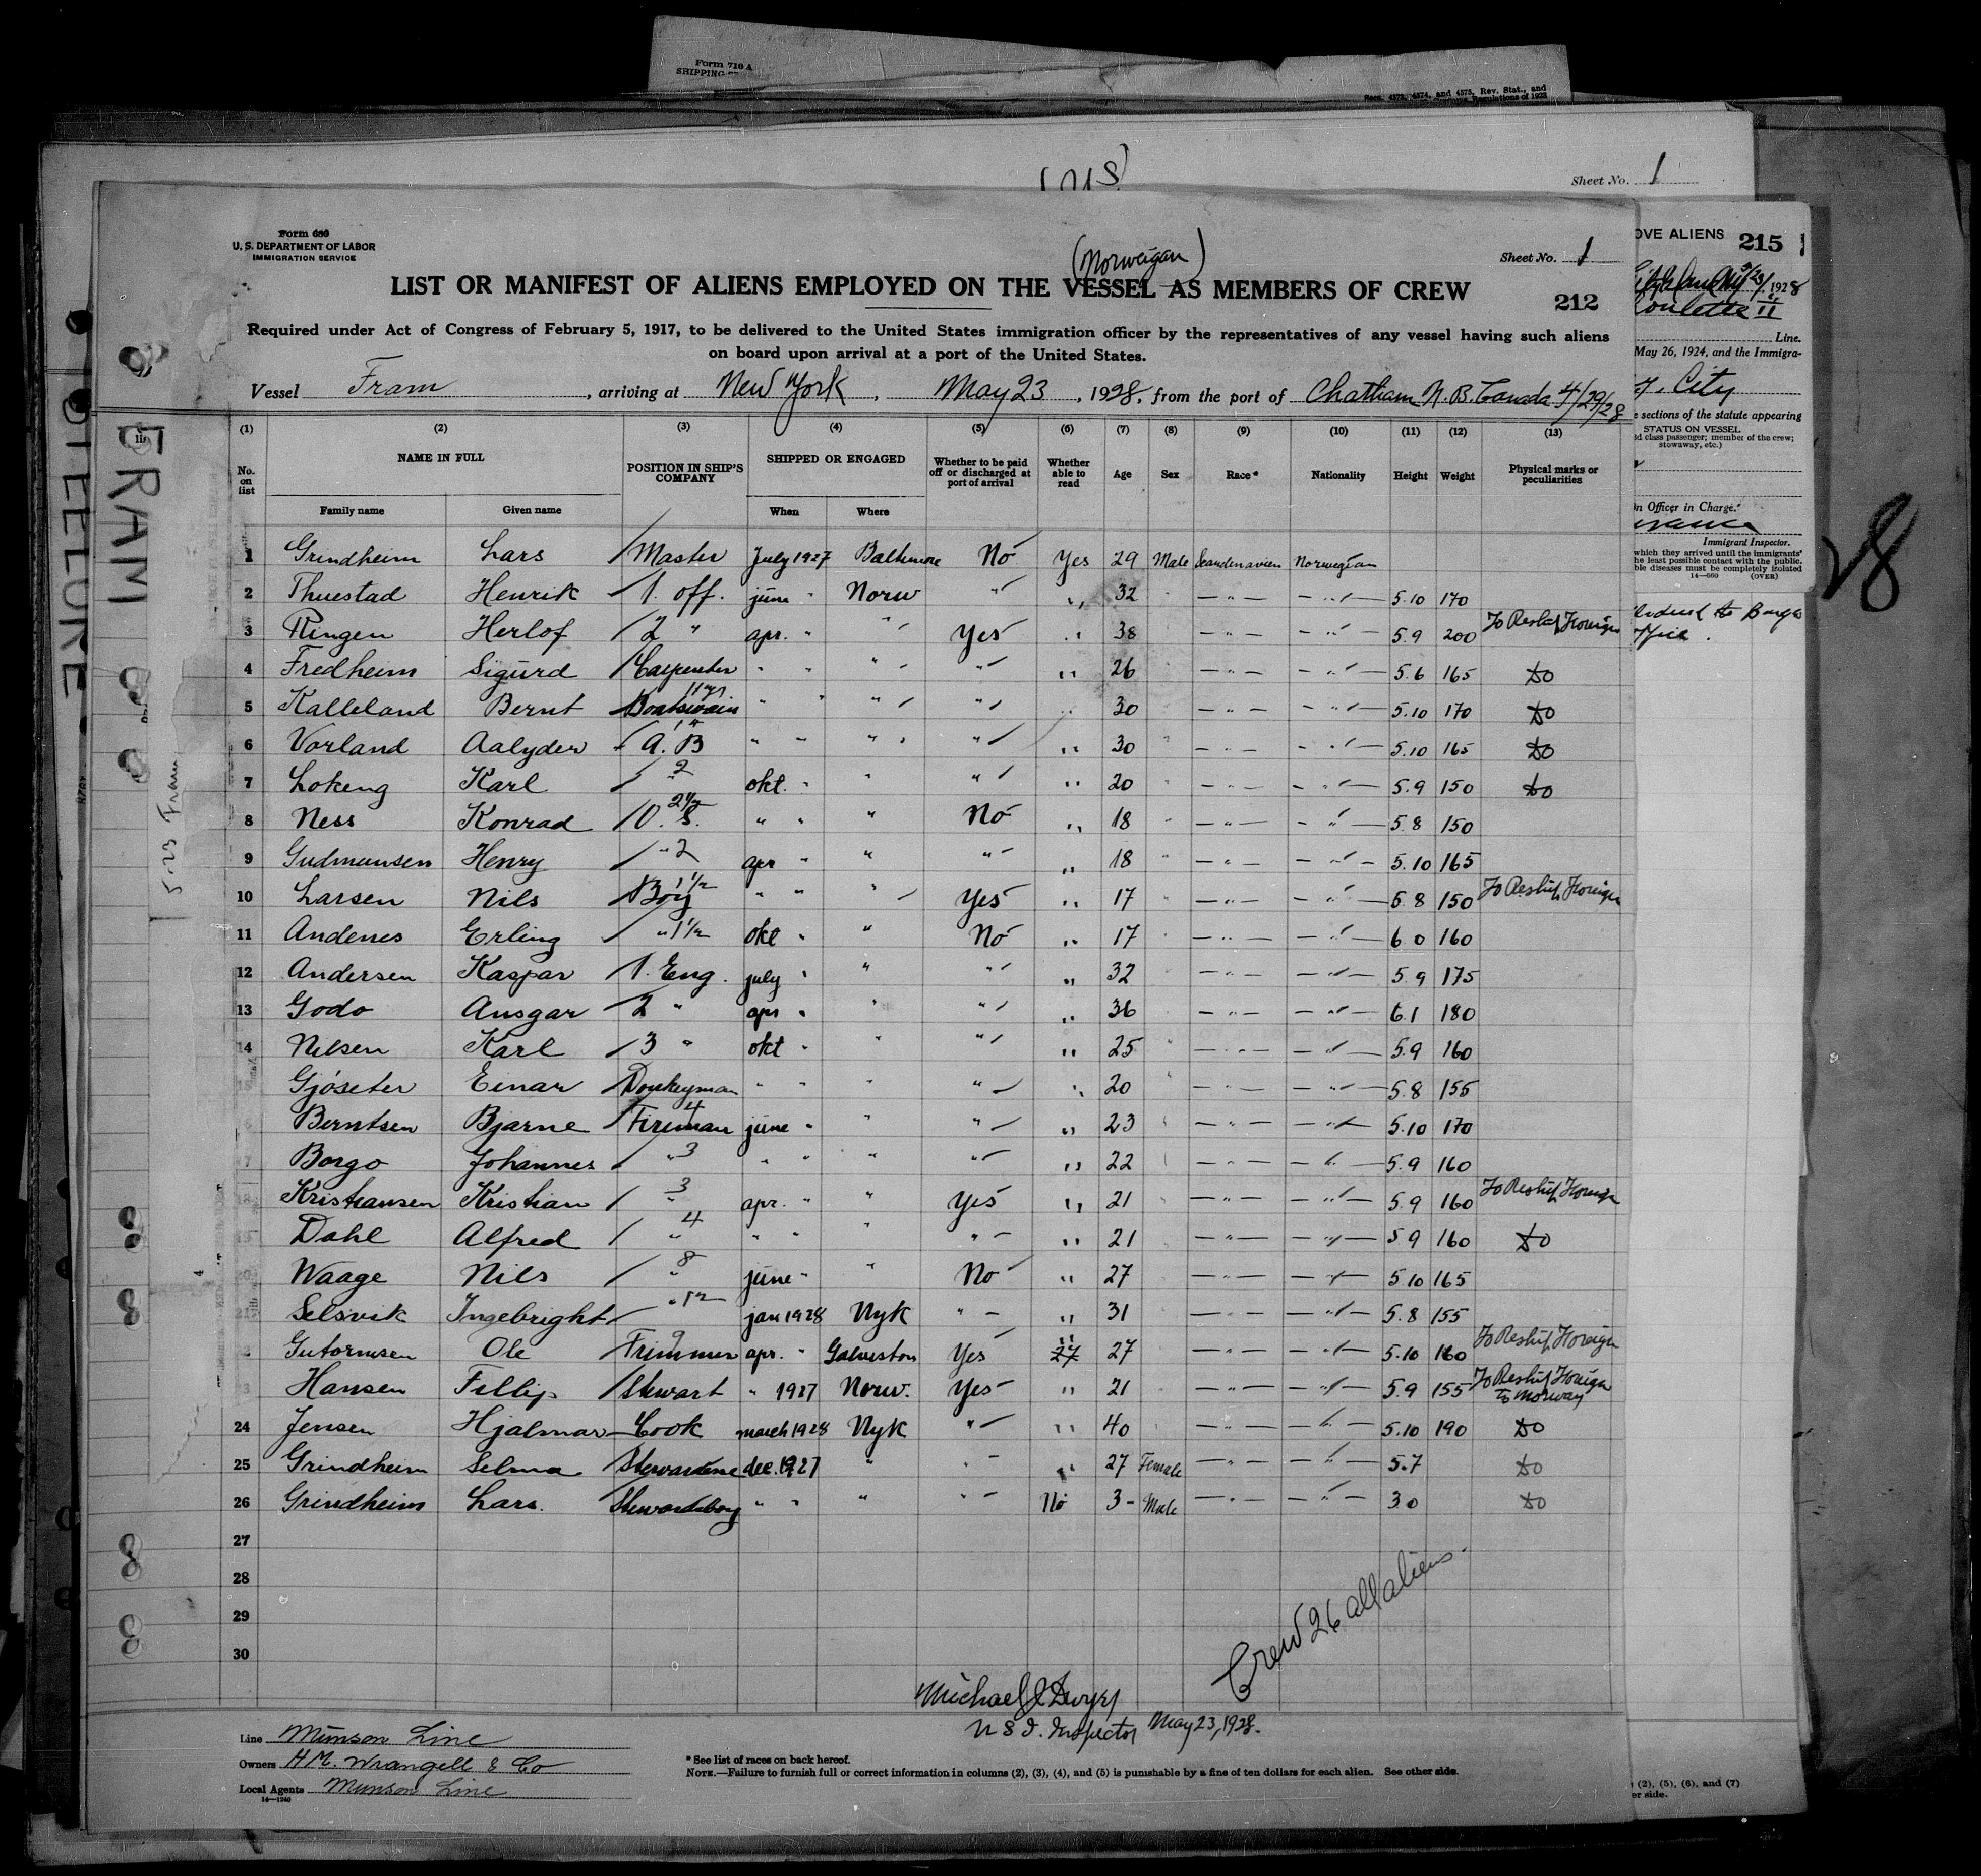 Form 710 A
SHIPPING
Secs. 4573, 4574, and 4575, Rev. Stat., and
Regulations of 1923
Sheet No. 1
Form 680
U. S. DEPARTMENT OF LABOR
IMMIGRATION SERVICE
(Norweigan)
Sheet No. 1
LIST OR MANIFEST OF ALIENS EMPLOYED ON THE VESSEL AS MEMBERS OF CREW
212
Required under Act of Congress of February 5, 1917, to be delivered to the United States immigration officer by the representatives of any vessel having such aliens
on board upon arrival at a port of the United States.
Vessel Fram, arriving at New York, May 23, 1928, from the port of Chatham N.B. Canada 4/29/28
(1) (2) (3) (4) (5) (6) (7) (8) (9) (10) (11) (12) (13)
No. on list NAME IN FULL POSITION IN SHIP'S COMPANY SHIPPED OR ENGAGED Whether to be paid off or discharged at port of arrival Whether able to read Age Sex Race* Nationality Height Weight Physical marks or peculiarities
Family name Given name When Where
1 Grindheim Lars Master July 1927 Baltimore No Yes 29 Male Scandenavien Norwegian
2 Thuestad Henrik 1. off. june " Norw " " 32 " " " 5.10 170
3 Ringen Herlof 2 " apr. " " Yes " 38 " " 5.9 200 To Reship Foreign
4 Fredheim Sigurd Carpenter " " " " " 26 " " 5.6 165 do
5 Kalleland Bernt Boatswain " " " " " 30 " " 5.10 170 do
6 Vorland Aalyder A. B " " " " " 30 " " " 5.10 165 do
7 Lokeng Karl " 2 okt. " " " " 20 " " 5.9 150 do
8 Ness Konrad O. S. 2 1/2 " " " No " 18 " " " 5.8 150
9 Gudmunsen Henry " 2 apr " " " " 18 " " " 5.10 165
10 Larsen Nils Boy 1 1/2 " " " Yes " 17 " " " 5.8 150 To Reship Foreign
11 Andenes Erling " 1 1/2 okt " " No " 17 " " 6 0 160
12 Andersen Kaspar 1. Eng. july " " " " 32 " " 5.9 175
13 Godo Ansgar 2 " apr " " " " 36 " " 6.1 180
14 Nilsen Karl 3 " okt " " " " 25 " " " 5.9 160
Gjöseter Einar Donkeyman " " " " " 20 " " " 5.8 155
Berntsen Bjarne Fireman 4 june " " " " 23 " " " 5.10 170
Borgo Johannes " 3 " " " " " 22 " " 5.9 160
18 Kristiansen Kristian " 3 apr. " " Yes " 21 " " 5.9 160 To Reship Foreign
Dahl Alfred " 4 " " " " " 21 " " 5 9 160 do
Waage Nils " 8 june " " No " 27 " " 5.10 165
21 Selsvik Ingebright " 12 jan 1928 Nyk " " 31 " " 5.8 155
Gutormsen Ole Trimmer 9 apr. " Galveston Yes " 27 " " 5.10 160 To Reship Foreign
Hansen Fillip Stewart " 1927 Norw. Yes " 21 " " 5.9 155 To Reship Foreign to Norway
24 Jensen Hjalmar Cook march 1928 Nyk " " 40 " " 5.10 190 do
25 Grindheim Selma Stewardesse dec. 1927 " " " 27 Female " " 5.7 do
26 Grindheim Lars. Stewardsboy " " " " No 3 - Male " " 3 0 do
27
28
29
30
Crew 26 all aliens.
Michael J Dwyer
U S I. Inspector May 23, 1928.
Line Munson Line
Owners H.M. Wrangell & Co
Local Agents Munson Line
14—1240
*See list of races on back hereof.
NOTE.—Failure to furnish full or correct information in columns (2), (3), (4), and (5) is punishable by a fine of ten dollars for each alien. See other side.
FRAM
5-23 Fram
OVE ALIENS 215
1928
Line.
May 26, 1924, and the Immigra-
City
e sections of the statute appearing
STATUS ON VESSEL
d class passenger; member of the crew;
stowaway, etc.)
n Officer in Charge.
Immigrant Inspector.
which they arrived until the immigrants'
he least possible contact with the public.
ble diseases must be completely isolated
14—660 (OVER)
(2), (5), (6), and (7)
er side.
28